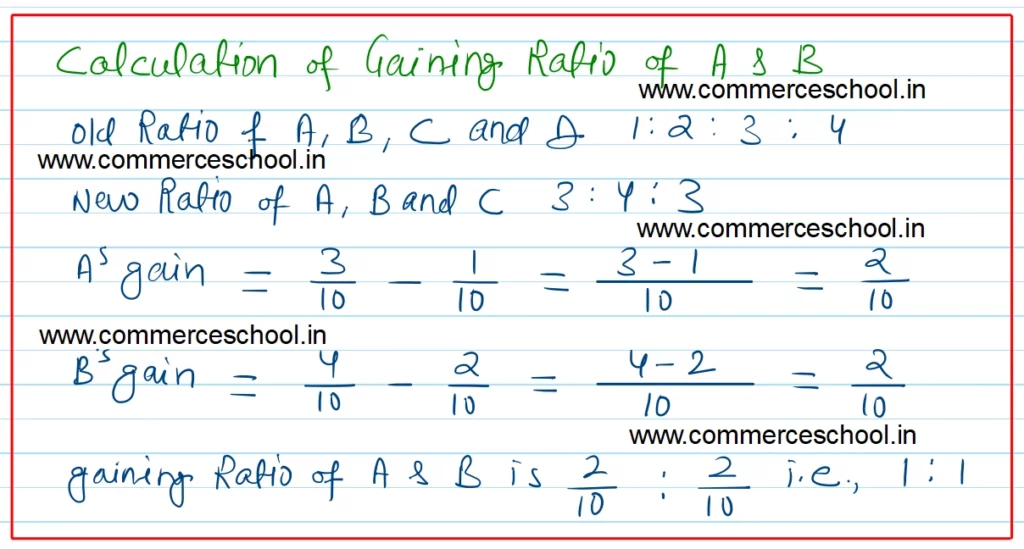 Calculation of Gaining Ratio of A & B
www.commerceschool.in
Old Ratio of A, B, C and D 1 : 2 : 3 : 4
www.commerceschool.in
New Ratio of A, B and C 3 : 4 : 3
www.commerceschool.in
A's gain = 3/10 - 1/10 = 3-1/10 = 2/10
www.commerceschool.in
B's gain = 4/10 - 2/10 = 4-2/10 = 2/10
www.commerceschool.in
gaining Ratio of A & B is 2/10 : 2/10 i.e., 1 : 1